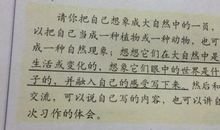 请你把自己想象成大自然中的一员，
以把自己当成一种植物或一种动物，也可
成一种自然现象；想想它们在大自然中是
生活或变化的，想象它们眼中的世界是什
子的，并融入自己的感受写下来。然后和
交流，可以说自己写的内容，也可以讲自
次习作的体会。